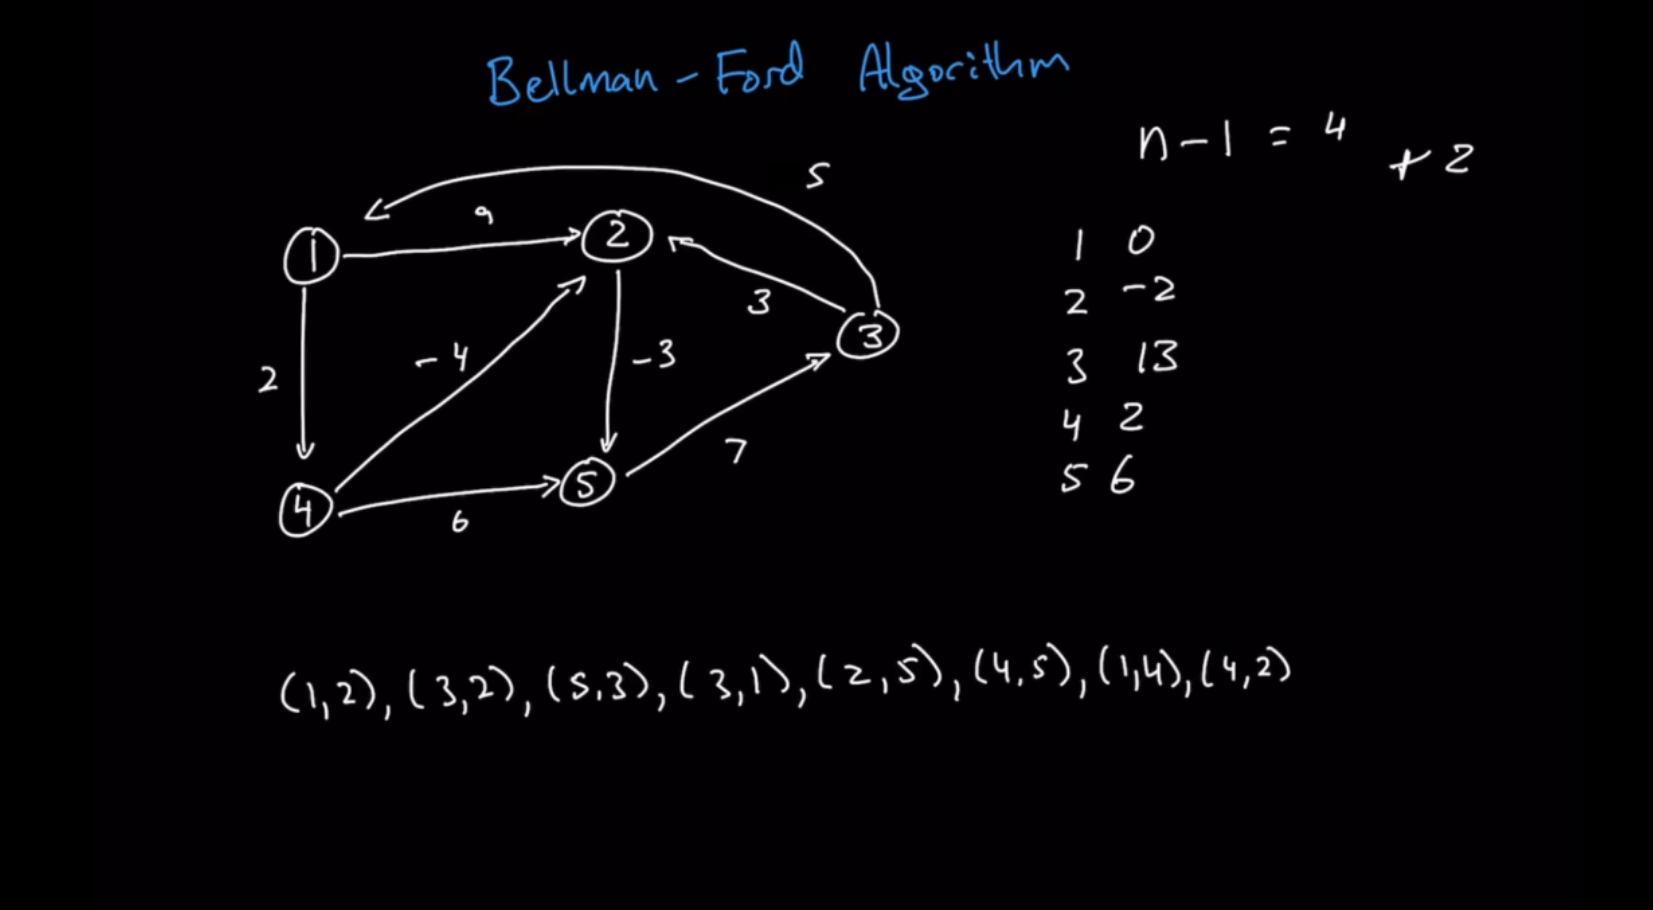 Bellman - Ford Algorithm
n - 1 = 4
+ 2
5
9
1
2
3
3
2
- 4
- 3
7
4
5
6
1 0
2 -2
3 13
4 2
5 6
(1,2), (3,2), (5,3), (3,1), (2,5), (4,5), (1,4), (4,2)